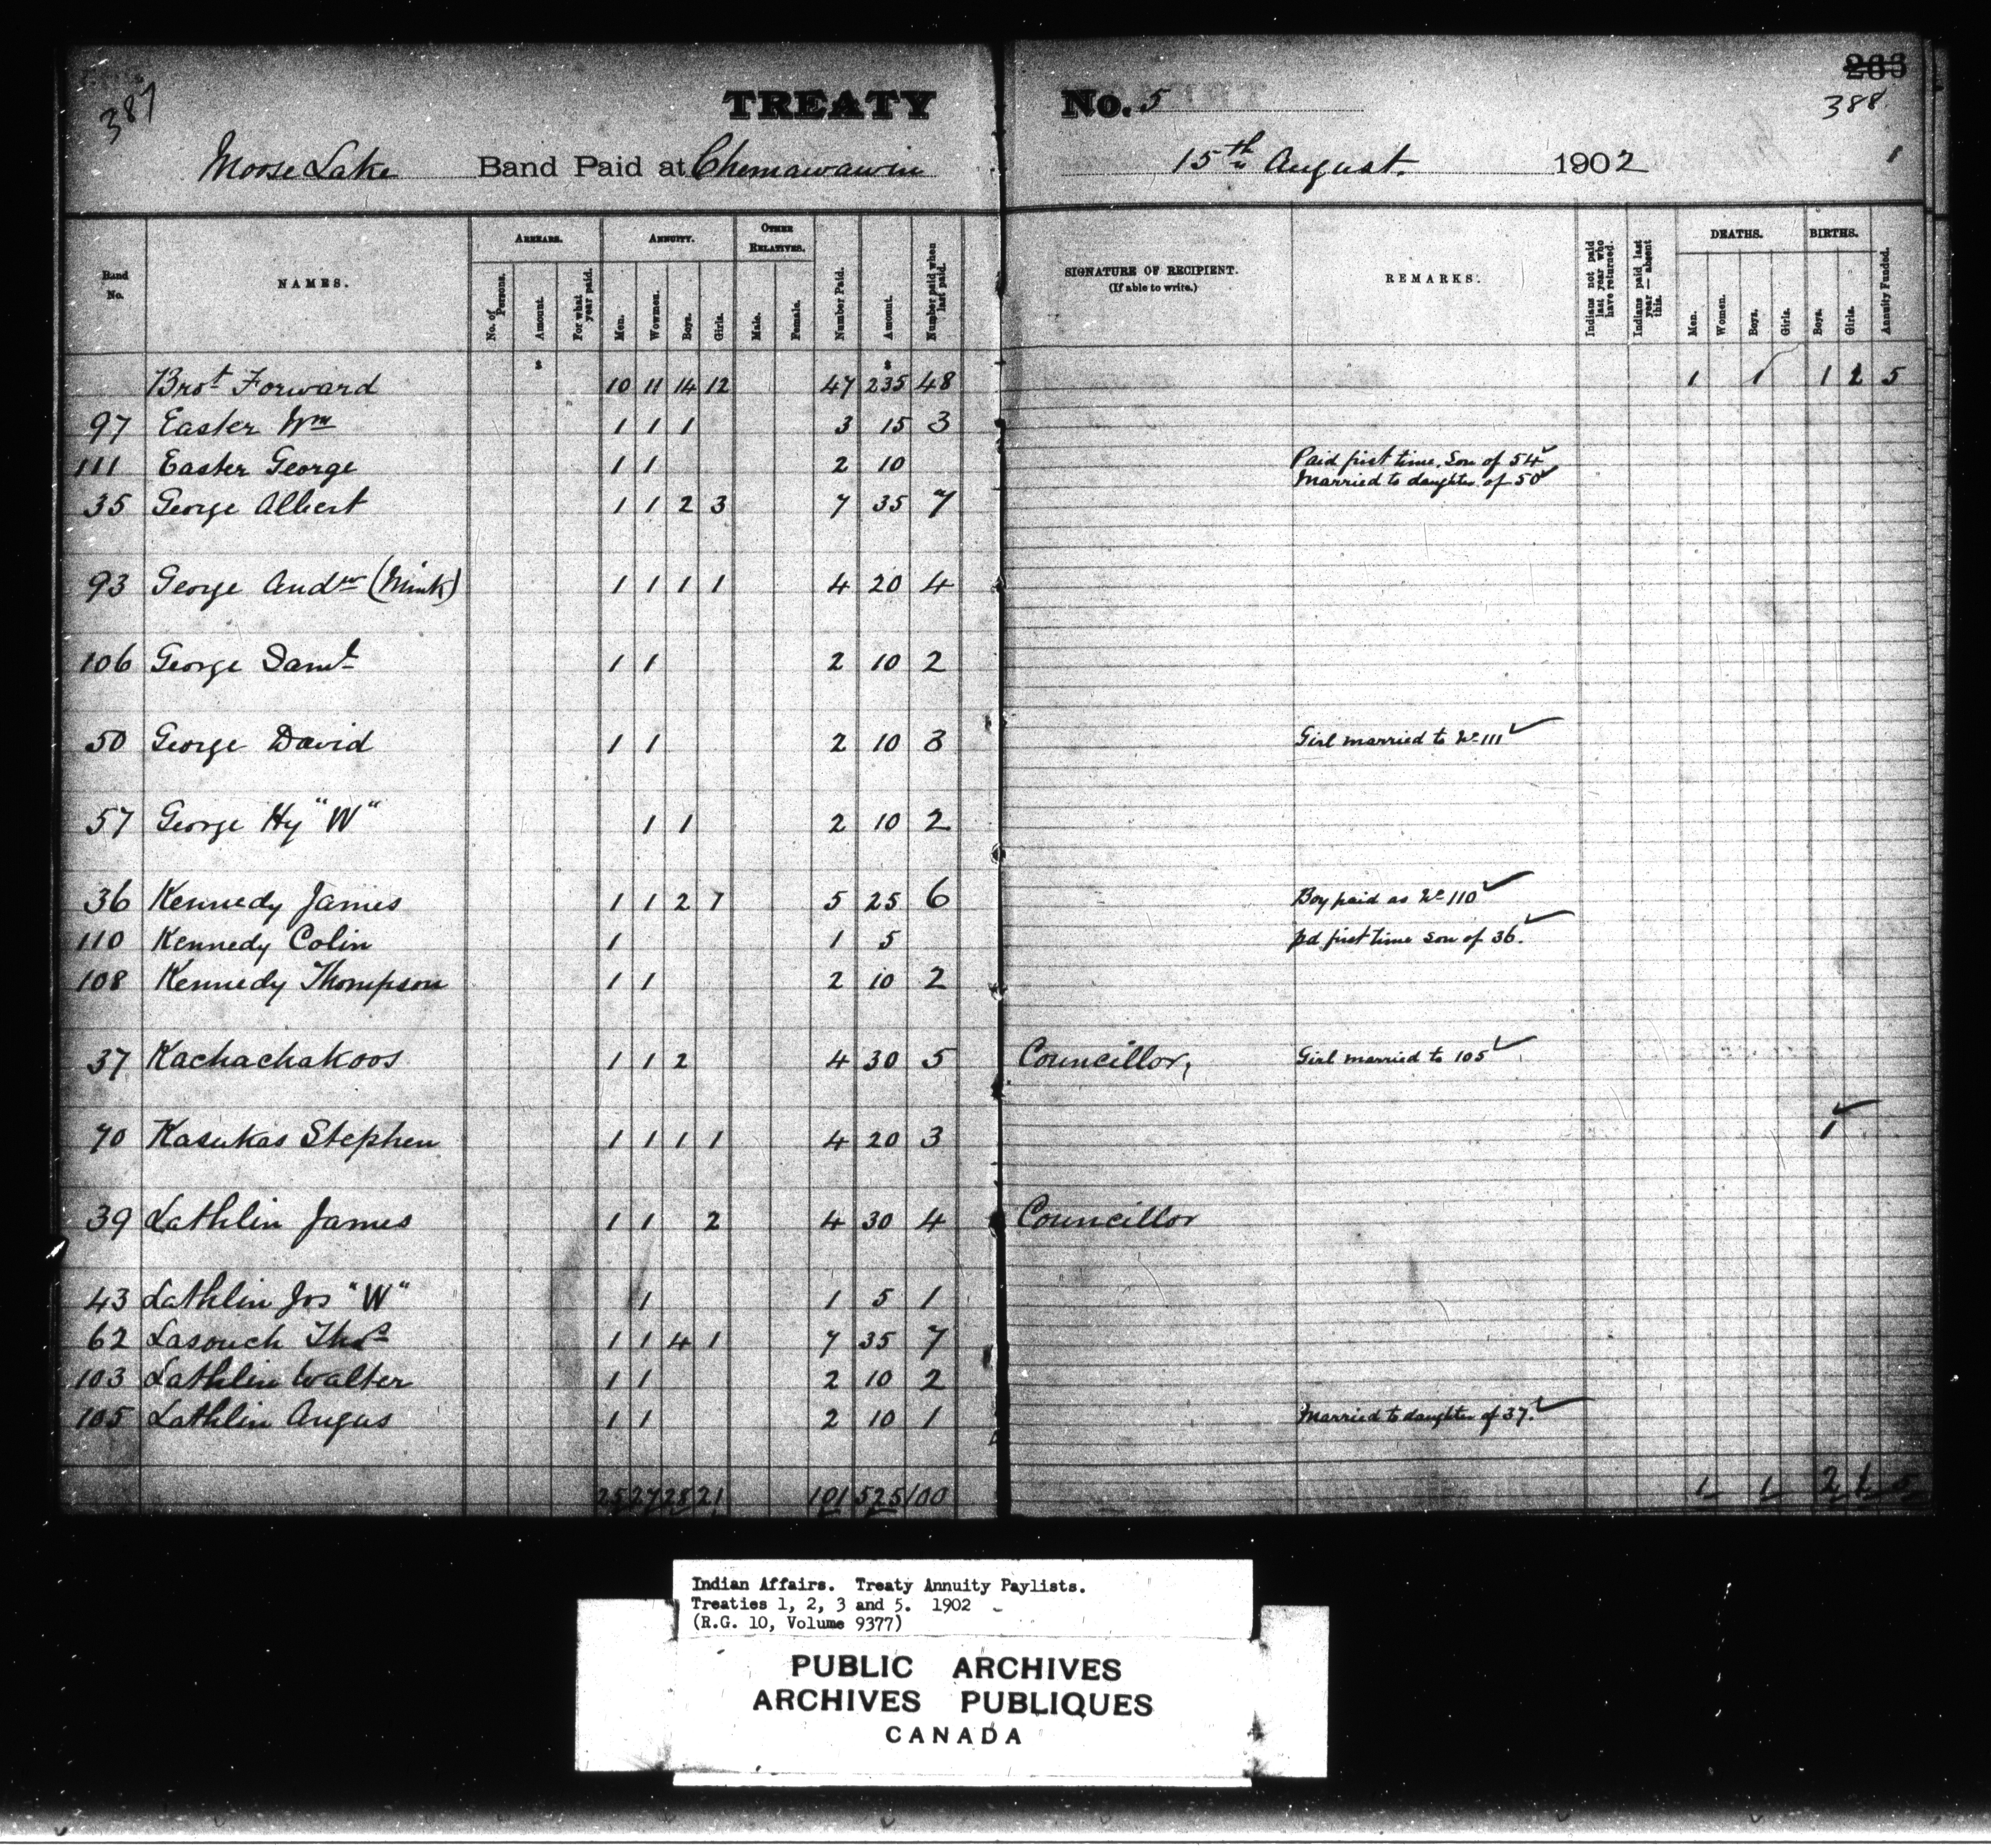 387
TREATY No. 5
266
388
Moose Lake Band Paid at Chemawawin 15th August. 1902
1
Band No. NAMES. ARREARS. ANNUITY. OTHER RELATIVES. Number Paid. Amount. Number paid when last paid. SIGNATURE OF RECIPIENT. (If able to write.) REMARKS. Indians not paid last year who have returned. Indians paid last year — absent this. DEATHS. BIRTHS. Annuity Funded.
No. of Persons. Amount. For what year paid. Men. Women. Boys. Girls. Male. Female. Men. Women. Boys. Girls. Boys. Girls.
$ $
Brot Forward 10 11 14 12 47 235 48 1 1 1 2 5
97 Easter Wm 1 1 1 3 15 3
111 Easter George 1 1 2 10 Paid first time. Son of 54
Married to daughter of 50
35 George Albert 1 1 2 3 7 35 7
93 George Andw (Mink) 1 1 1 1 4 20 4
106 George Saml 1 1 2 10 2
50 George David 1 1 2 10 3 Girl married to No 111
57 George Hy "W" 1 1 2 10 2
36 Kennedy James 1 1 2 1 5 25 6 Boy paid as No 110
110 Kennedy Colin 1 1 5 pd first time son of 36.
108 Kennedy Thompson 1 1 2 10 2
37 Kachachakoos 1 1 2 4 30 5 Councillor, Girl married to 105
70 Kasukas Stephen 1 1 1 1 4 20 3 1
39 Lathlin James 1 1 2 4 30 4 Councillor
43 Lathlin Jos "W" 1 1 5 1
62 Lasouch Thos 1 1 4 1 7 35 7
103 Lathlin Walter 1 1 2 10 2
105 Lathlin Angus 1 1 2 10 1 Married to daughter of 37.
25 27 28 21 101 525 100 1 1 2 1 5
Indian Affairs. Treaty Annuity Paylists.
Treaties 1, 2, 3 and 5. 1902
(R.G. 10, Volume 9377)
PUBLIC ARCHIVES
ARCHIVES PUBLIQUES
CANADA